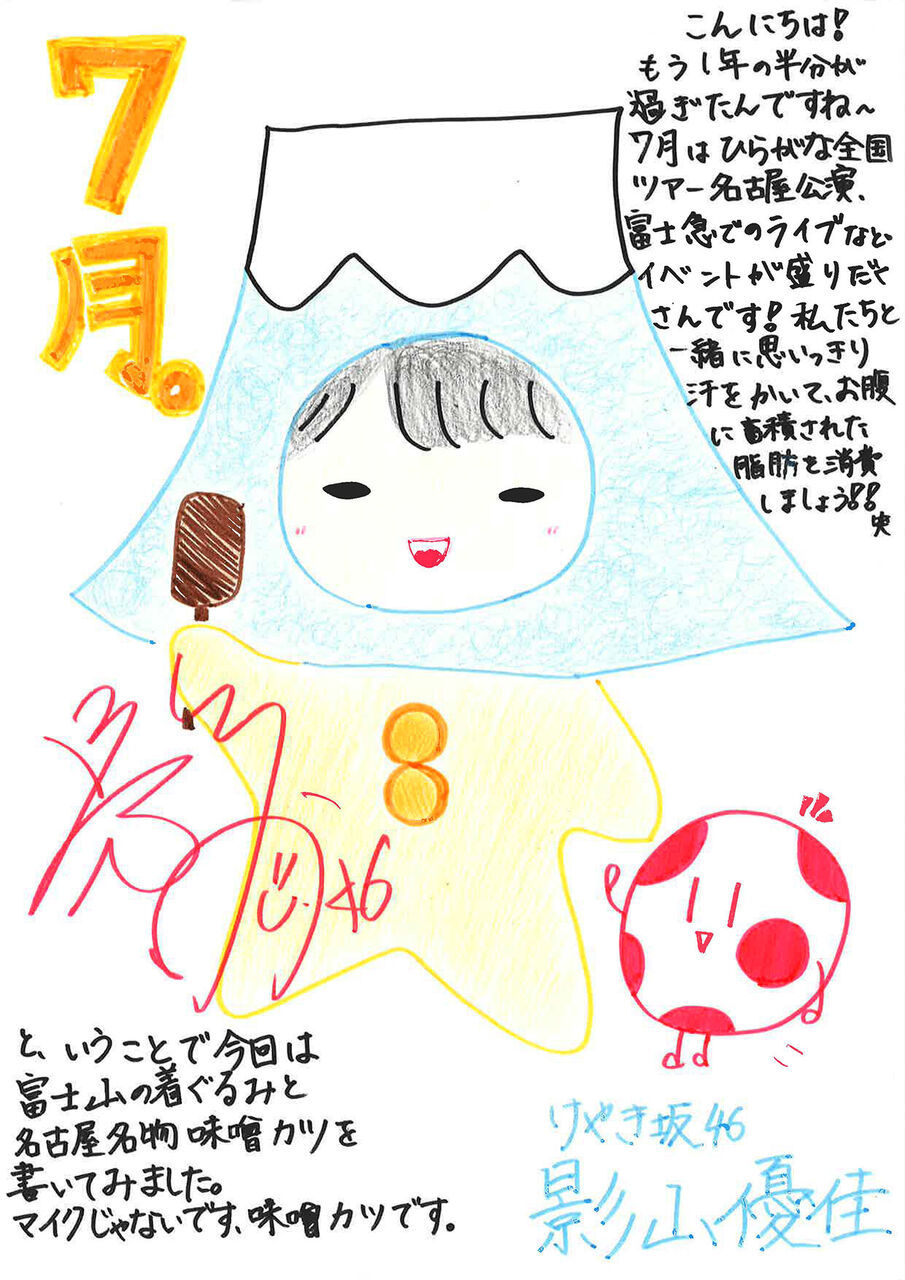 7月。
こんにちは!
もう1年の半分が
過ぎたんですね〜
7月はひらがな全国
ツアー名古屋公演、
富士急でのライブなど
イベントが盛りだく
さんです!私たちと
一緒に思いっきり
汗をかいて、お腹
に畜積された
脂肪を消費
しましょう!!
46
と、いうことで今回は
富士山の着ぐるみと
名古屋名物味噌カツを
書いてみました。
マイクじゃないです、味噌カツです。
けやき坂46
影山優佳